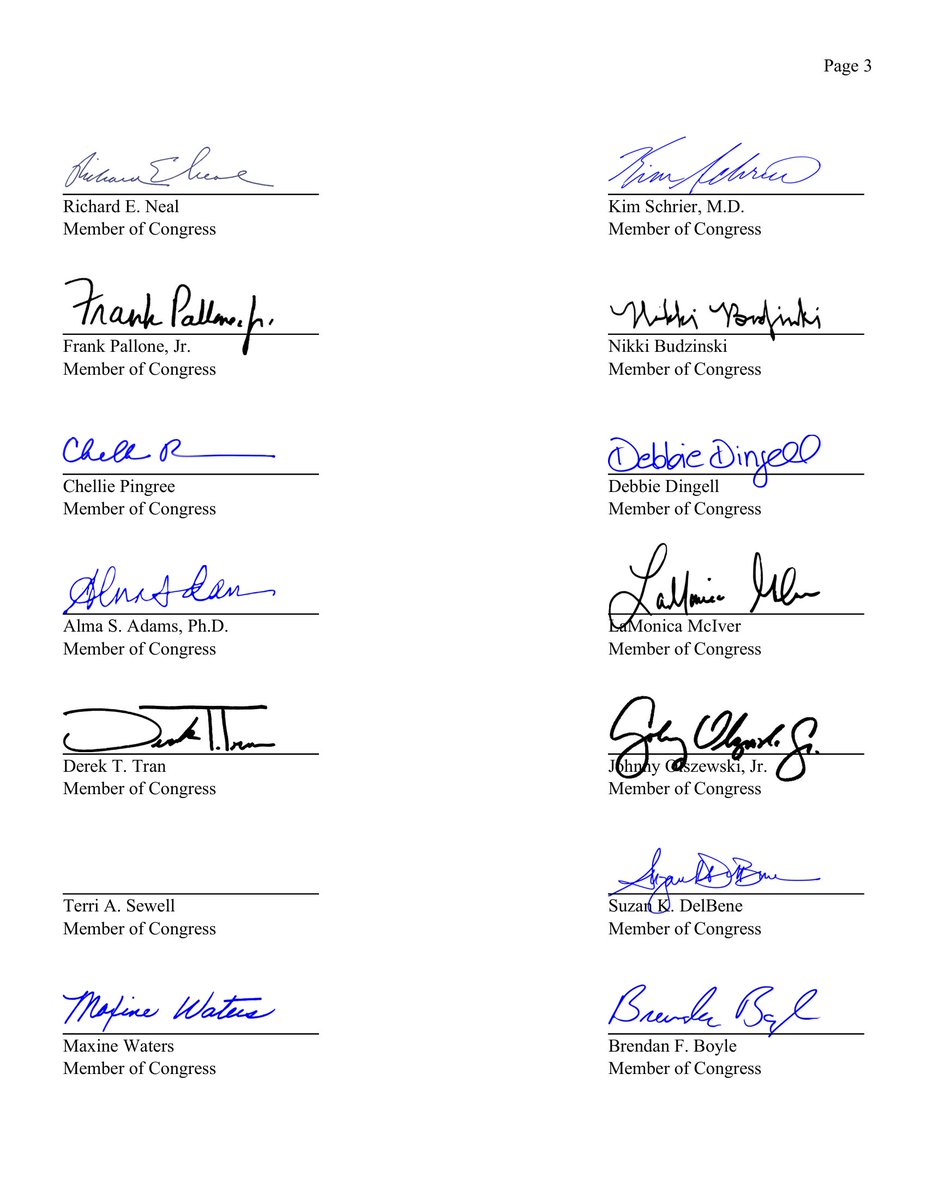 Page 3
Richard E. Neal
Richard E. Neal
Member of Congress
Kim Schrier
Kim Schrier, M.D.
Member of Congress
Frank Pallone, Jr.
Frank Pallone, Jr.
Member of Congress
Nikki Budzinski
Nikki Budzinski
Member of Congress
Chellie Pingree
Member of Congress
Debbie Dingell
Debbie Dingell
Member of Congress
Alma S. Adams, Ph.D.
Member of Congress
LaMonica
LaMonica McIver
Member of Congress
Derek T. Tran
Derek T. Tran
Member of Congress
Johnny Olszewski, Jr.
Member of Congress
Terri A. Sewell
Member of Congress
Suzan K. DelBene
Member of Congress
Maxine Waters
Maxine Waters
Member of Congress
Brendan Boyle
Brendan F. Boyle
Member of Congress